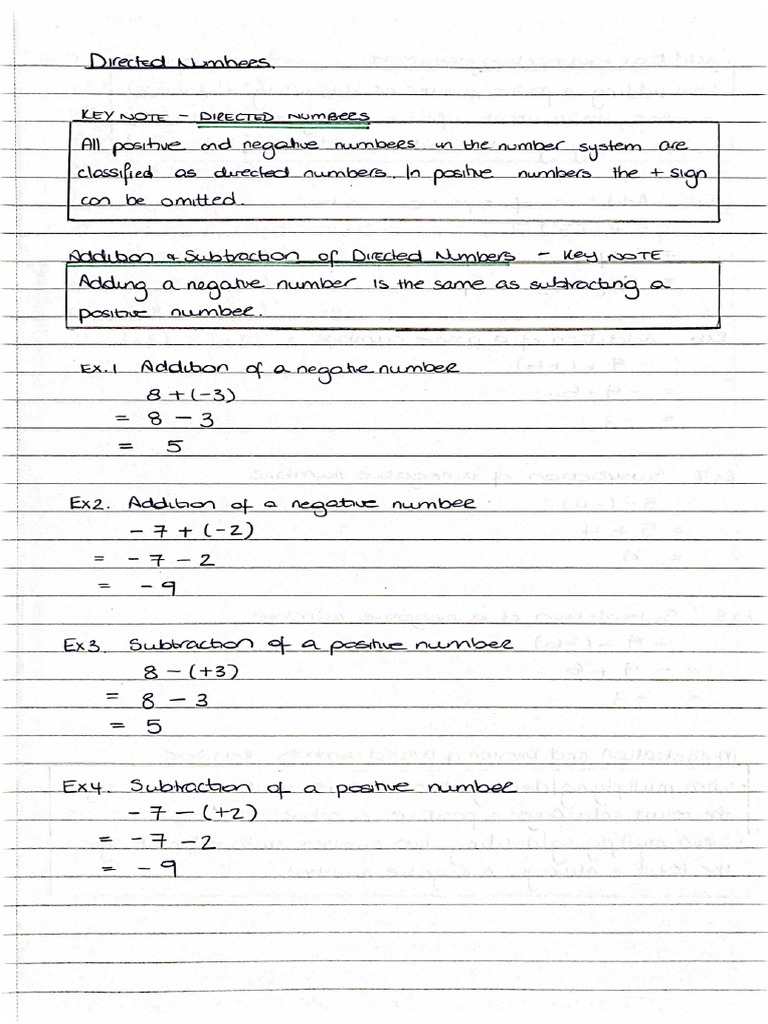 Directed Numbers.
KEY NOTE - DIRECTED NUMBERS
All positive and negative numbers in the number system are
classified as directed numbers. In positive numbers the + sign
can be omitted.
Addition & Subtraction of Directed Numbers - KEY NOTE
Adding a negative number is the same as subtracting a
positive number.
Ex.1 Addition of a negative number
8 + (-3)
= 8 - 3
= 5
Ex2. Addition of a negative number
- 7 + (-2)
= - 7 - 2
= - 9
Ex3. Subtraction of a positive number
8 - (+3)
= 8 - 3
= 5
Ex4. Subtraction of a positive number
- 7 - (+2)
= - 7 - 2
= - 9